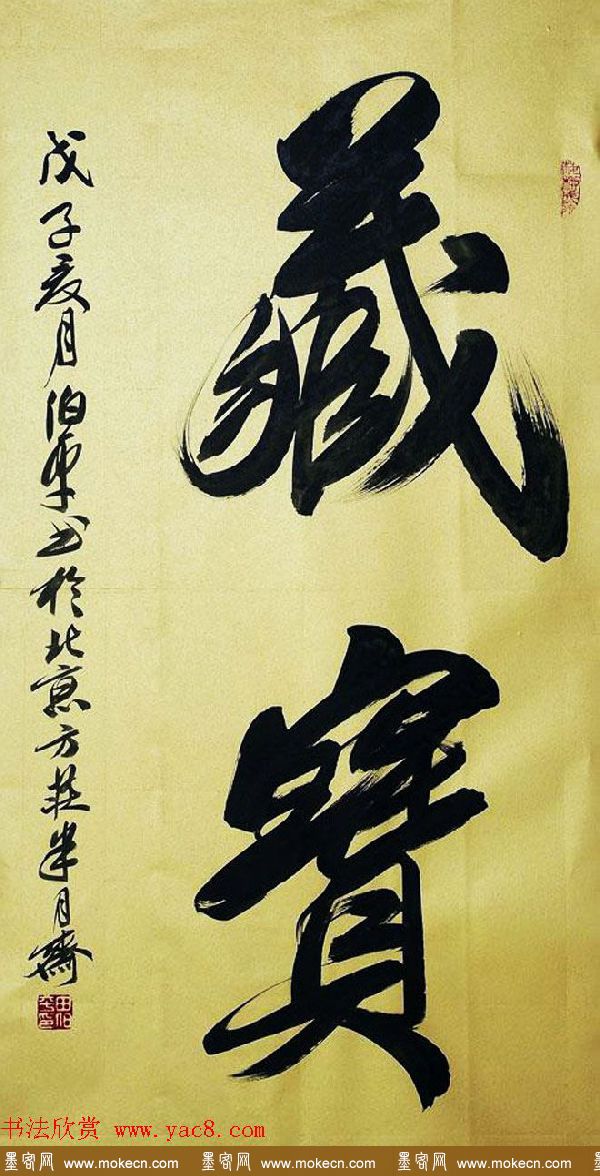 藏寶
戊子夏月伯平书於北京方莊半月齋
田伯平印
书法欣赏 www.yac8.com
墨客网 www.mokecn.com 墨客网 www.mokecn.com 墨客网 www.mokecn.com